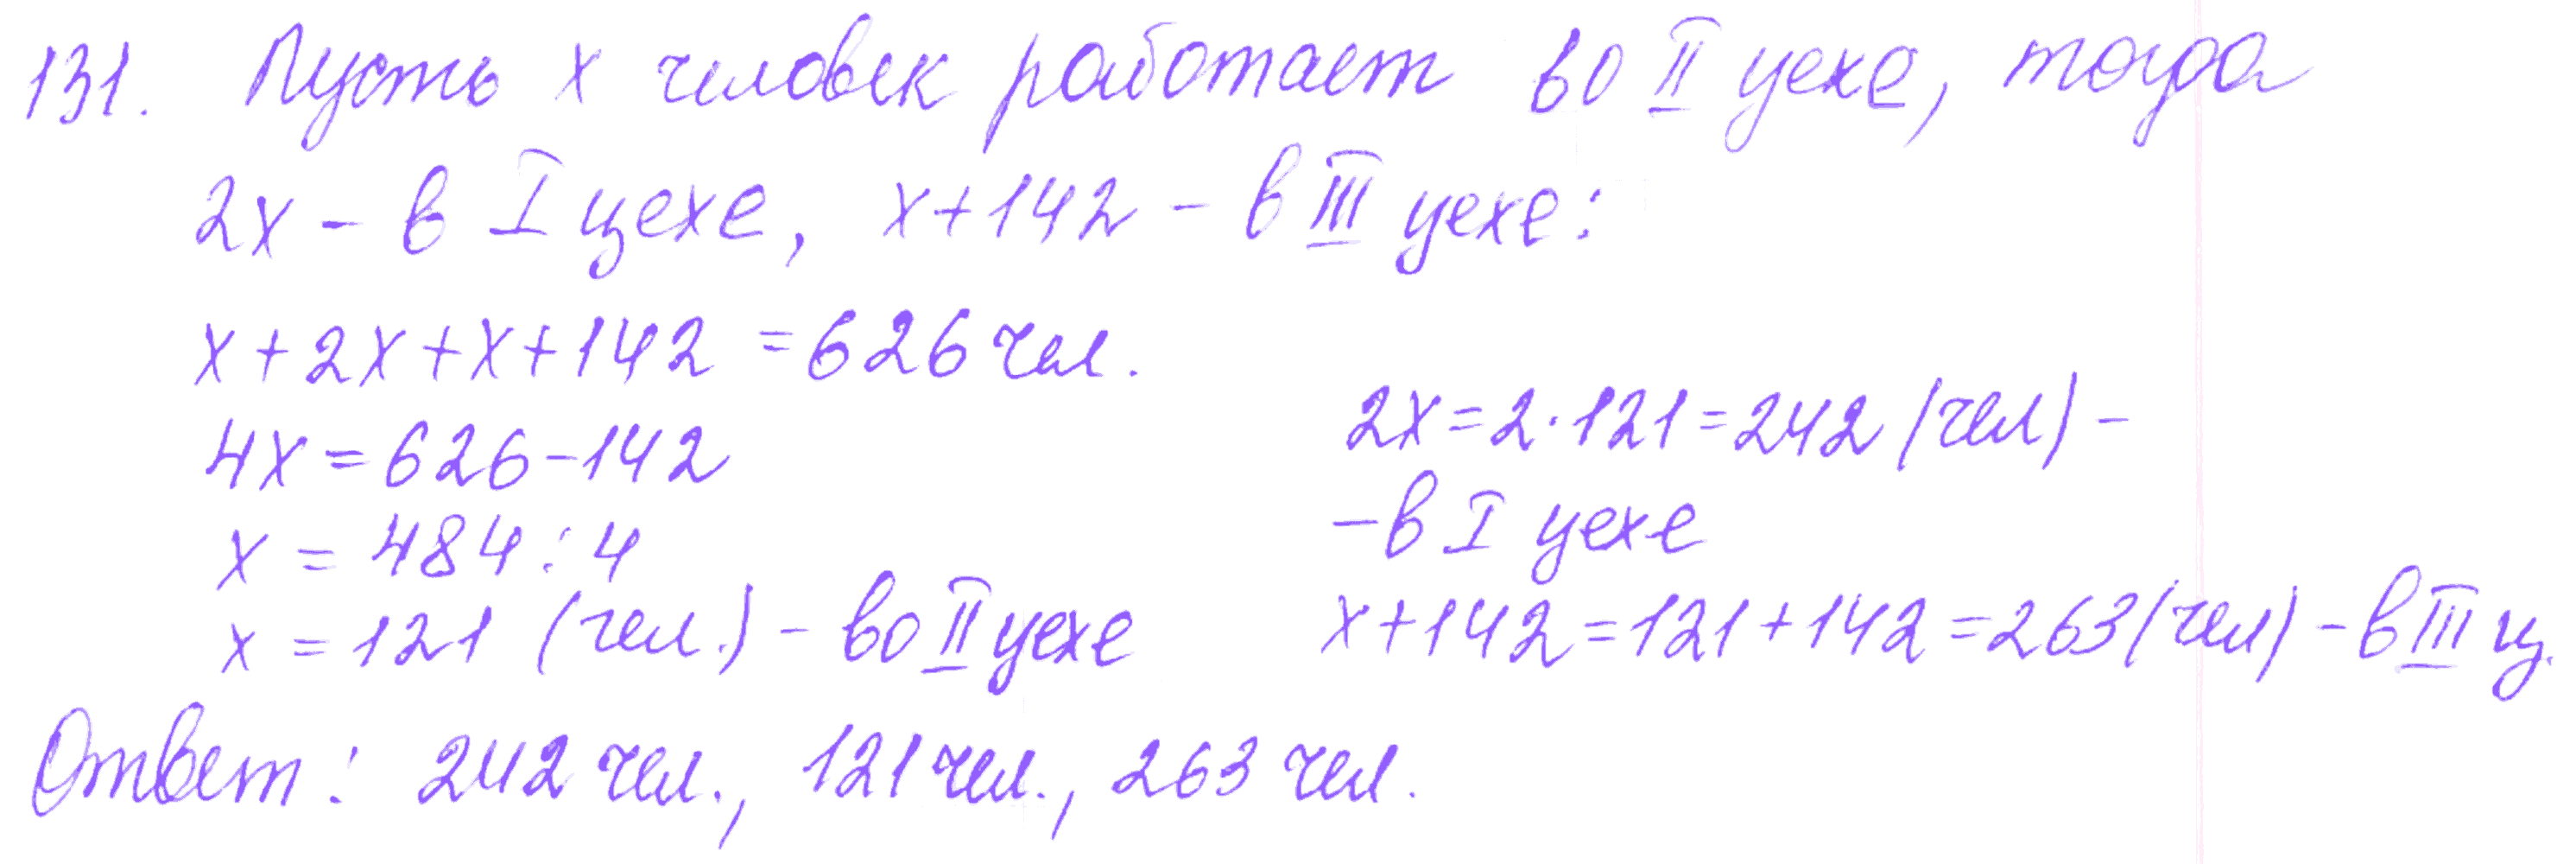 131. Пусть x человек работает во II цехе, тогда
2x - в I цехе, x+142 - в III цехе:
x+2x+x+142 = 626 чел.
4x = 626-142
x = 484 : 4
x = 121 (чел.) - во II цехе
2x = 2·121 = 242 (чел) -
- в I цехе
x+142 = 121+142 = 263 (чел) - в III ц.
Ответ: 242 чел., 121 чел., 263 чел.